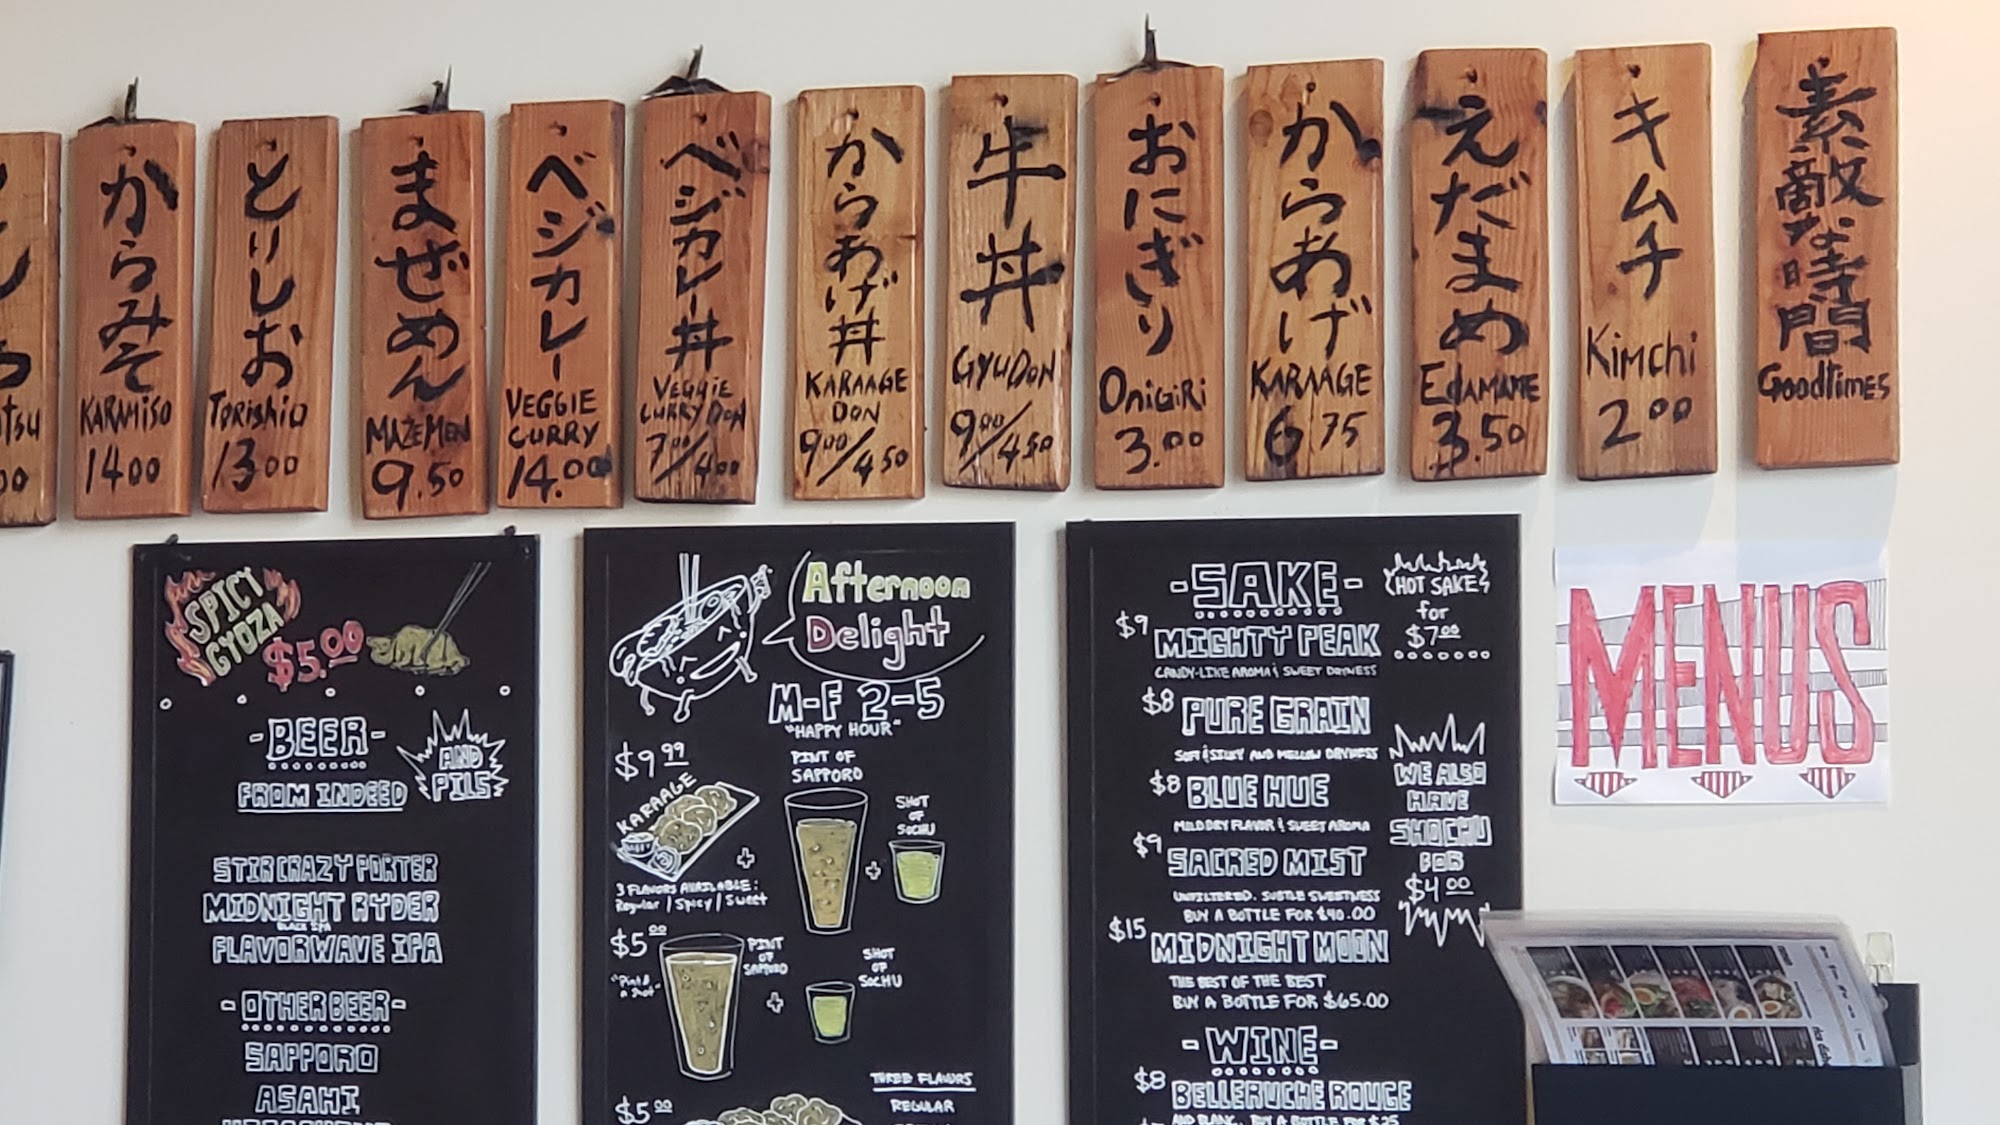 からみそ
KARAMISO
14.00
とりしお
TORISHIO
13.00
まぜめん
MAZEMEN
9.50
ベジカレー
VEGGIE
CURRY
14.00
ベジカレー丼
VEGGIE
CURRY DON
7.00/4.00
からあげ丼
KARAAGE
DON
9.00/4.50
牛丼
GYUDON
9.00/4.50
おにぎり
ONIGIRI
3.00
からあげ
KARAAGE
6.75
えだまめ
EDAMAME
3.50
キムチ
Kimchi
2.00
素敵な時間
Goodtimes
SPICY
GYOZA
$5.00
-BEER-
AND
PILS
FROM INDEED
STIR CRAZY PORTER
MIDNIGHT RYDER
BLACK IPA
FLAVORWAVE IPA
-OTHER BEER-
SAPPORO
ASAHI
Afternoon
Delight
M-F 2-5
"HAPPY HOUR"
$9.99
KARAAGE
+
PINT OF
SAPPORO
+
SHOT
OF
SOCHU
3 FLAVORS AVAILABLE:
Regular / Spicy / Sweet
$5.00
"Pint &
a Shot"
PINT
OF
SAPPORO
+
SHOT
OF
SOCHU
$5.00
THREE FLAVORS
REGULAR
-SAKE-
HOT SAKE
for
$7.00
$9
MIGHTY PEAK
CANDY-LIKE AROMA & SWEET DRYNESS
$8
PURE GRAIN
SOFT & SILKY AND MELLOW DRYNESS
$8
BLUE HUE
MILD DRY FLAVOR & SWEET AROMA
$9
SACRED MIST
UNFILTERED. SUBTLE SWEETNESS
BUY A BOTTLE FOR $40.00
$15
MIDNIGHT MOON
THE BEST OF THE BEST
BUY A BOTTLE FOR $65.00
WE ALSO
HAVE
SHOCHU
FOR
$4.00
-WINE-
$8
BELLERUCHE ROUGE
MENUS